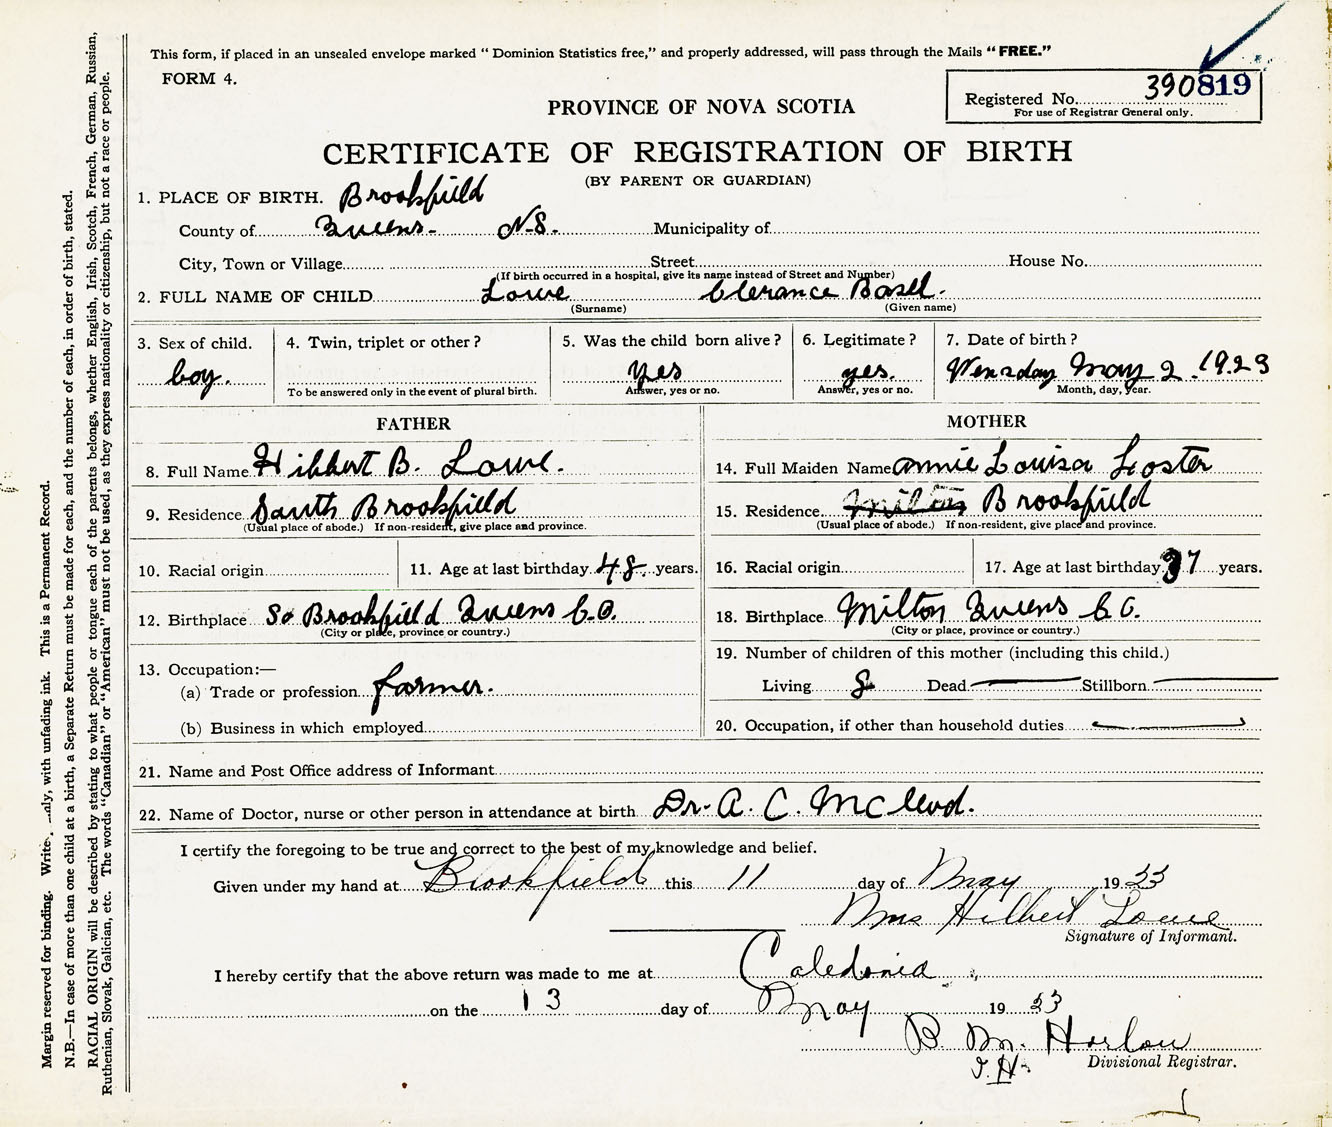 This form, if placed in an unsealed envelope marked “ Dominion Statistics free,” and properly addressed, will pass through the Mails “ FREE.”
FORM 4.
Registered No. 390819
For use of Registrar General only.
PROVINCE OF NOVA SCOTIA
CERTIFICATE OF REGISTRATION OF BIRTH
(BY PARENT OR GUARDIAN)
1. PLACE OF BIRTH. Brookfield
County of Queens- N.S. Municipality of
City, Town or Village Street House No.
(If birth occurred in a hospital, give its name instead of Street and Number)
2. FULL NAME OF CHILD Lowe Clerance Basel.
(Surname) (Given name)
3. Sex of child. 4. Twin, triplet or other? 5. Was the child born alive? 6. Legitimate? 7. Date of birth?
boy. yes yes. Wensday May 2. 1923
To be answered only in the event of plural birth. Answer, yes or no. Answer, yes or no. Month, day, year.
FATHER
8. Full Name Hibbert B. Lowe.
9. Residence South Brookfield
(Usual place of abode.) If non-resident, give place and province.
10. Racial origin 11. Age at last birthday 48. years.
12. Birthplace So Brookfield Queens C.O.
(City or place, province or country.)
13. Occupation:—
(a) Trade or profession farmer.
(b) Business in which employed
MOTHER
14. Full Maiden Name Annie Louisa Foster
15. Residence Milton Brookfield
(Usual place of abode.) If non-resident, give place and province.
16. Racial origin 17. Age at last birthday 37 years.
18. Birthplace Milton Queens C O.
(City or place, province or country.)
19. Number of children of this mother (including this child.)
Living 8 Dead Stillborn
20. Occupation, if other than household duties
21. Name and Post Office address of Informant
22. Name of Doctor, nurse or other person in attendance at birth Dr. A. C. McLeod.
I certify the foregoing to be true and correct to the best of my knowledge and belief.
Given under my hand at Brookfield this 11 day of May 1923
Mrs Hilbert Lowe
Signature of Informant.
I hereby certify that the above return was made to me at Caledonia
on the 13 day of May 1923
B. M. Harlow
Divisional Registrar.
Margin reserved for binding. This is a Permanent Record.
N.B.—In case of more than one child at a birth, a Separate Return must be made for each, and the number of each, in order of birth, stated.
RACIAL ORIGIN will be described by stating to what people or tongue each of the parents belongs, whether English, Irish, Scotch, French, German, Russian,
Ruthenian, Slovak, Galician, etc. The words “Canadian” or “American” must not be used, as they express nationality or citizenship, but not a race or people.